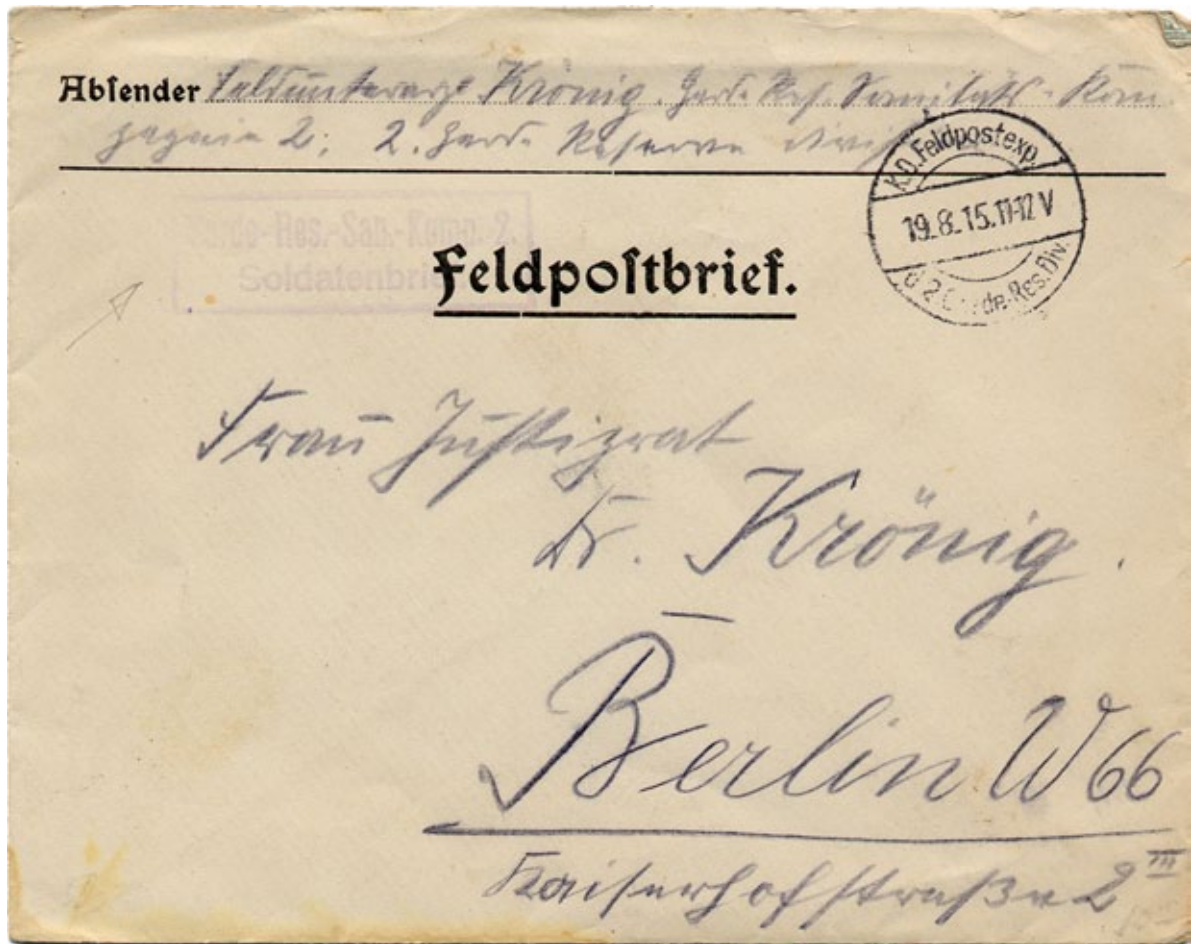 Absender Feldunterarzt Krönig. Garde Res. Sanitäts-Kom
pagnie 2; 2. Garde Reserve Division
K.D. Feldpostexp.
19.8.15.11-12 V
d 2 Garde-Res. Div.
Garde-Res.-San.-Komp. 2.
Soldatenbrief
Feldpostbrief.
Frau Justizrat
Dr. Krönig.
Berlin W 66
Kaiserhofstraße 2 III